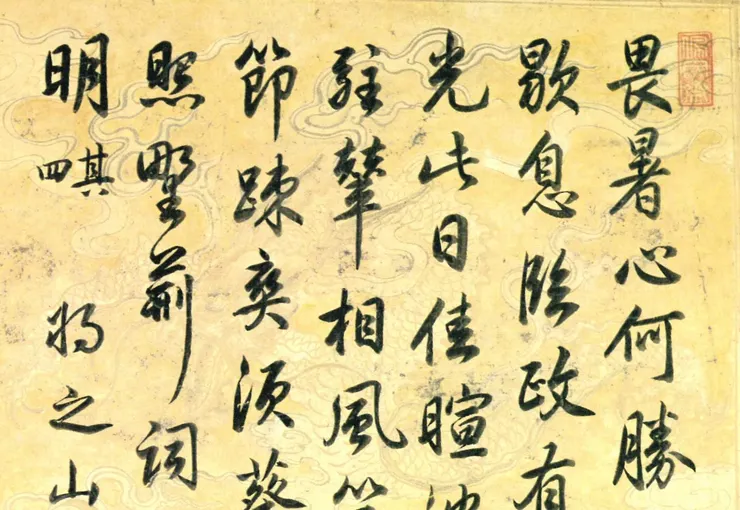 畏暑心何勝
歇息臨政有
光此日佳暄
駐輦相風
節踈奕須葵
照野詞
明 其四 将之山